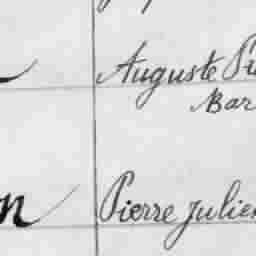 Auguste
Bar
n Pierre Julien